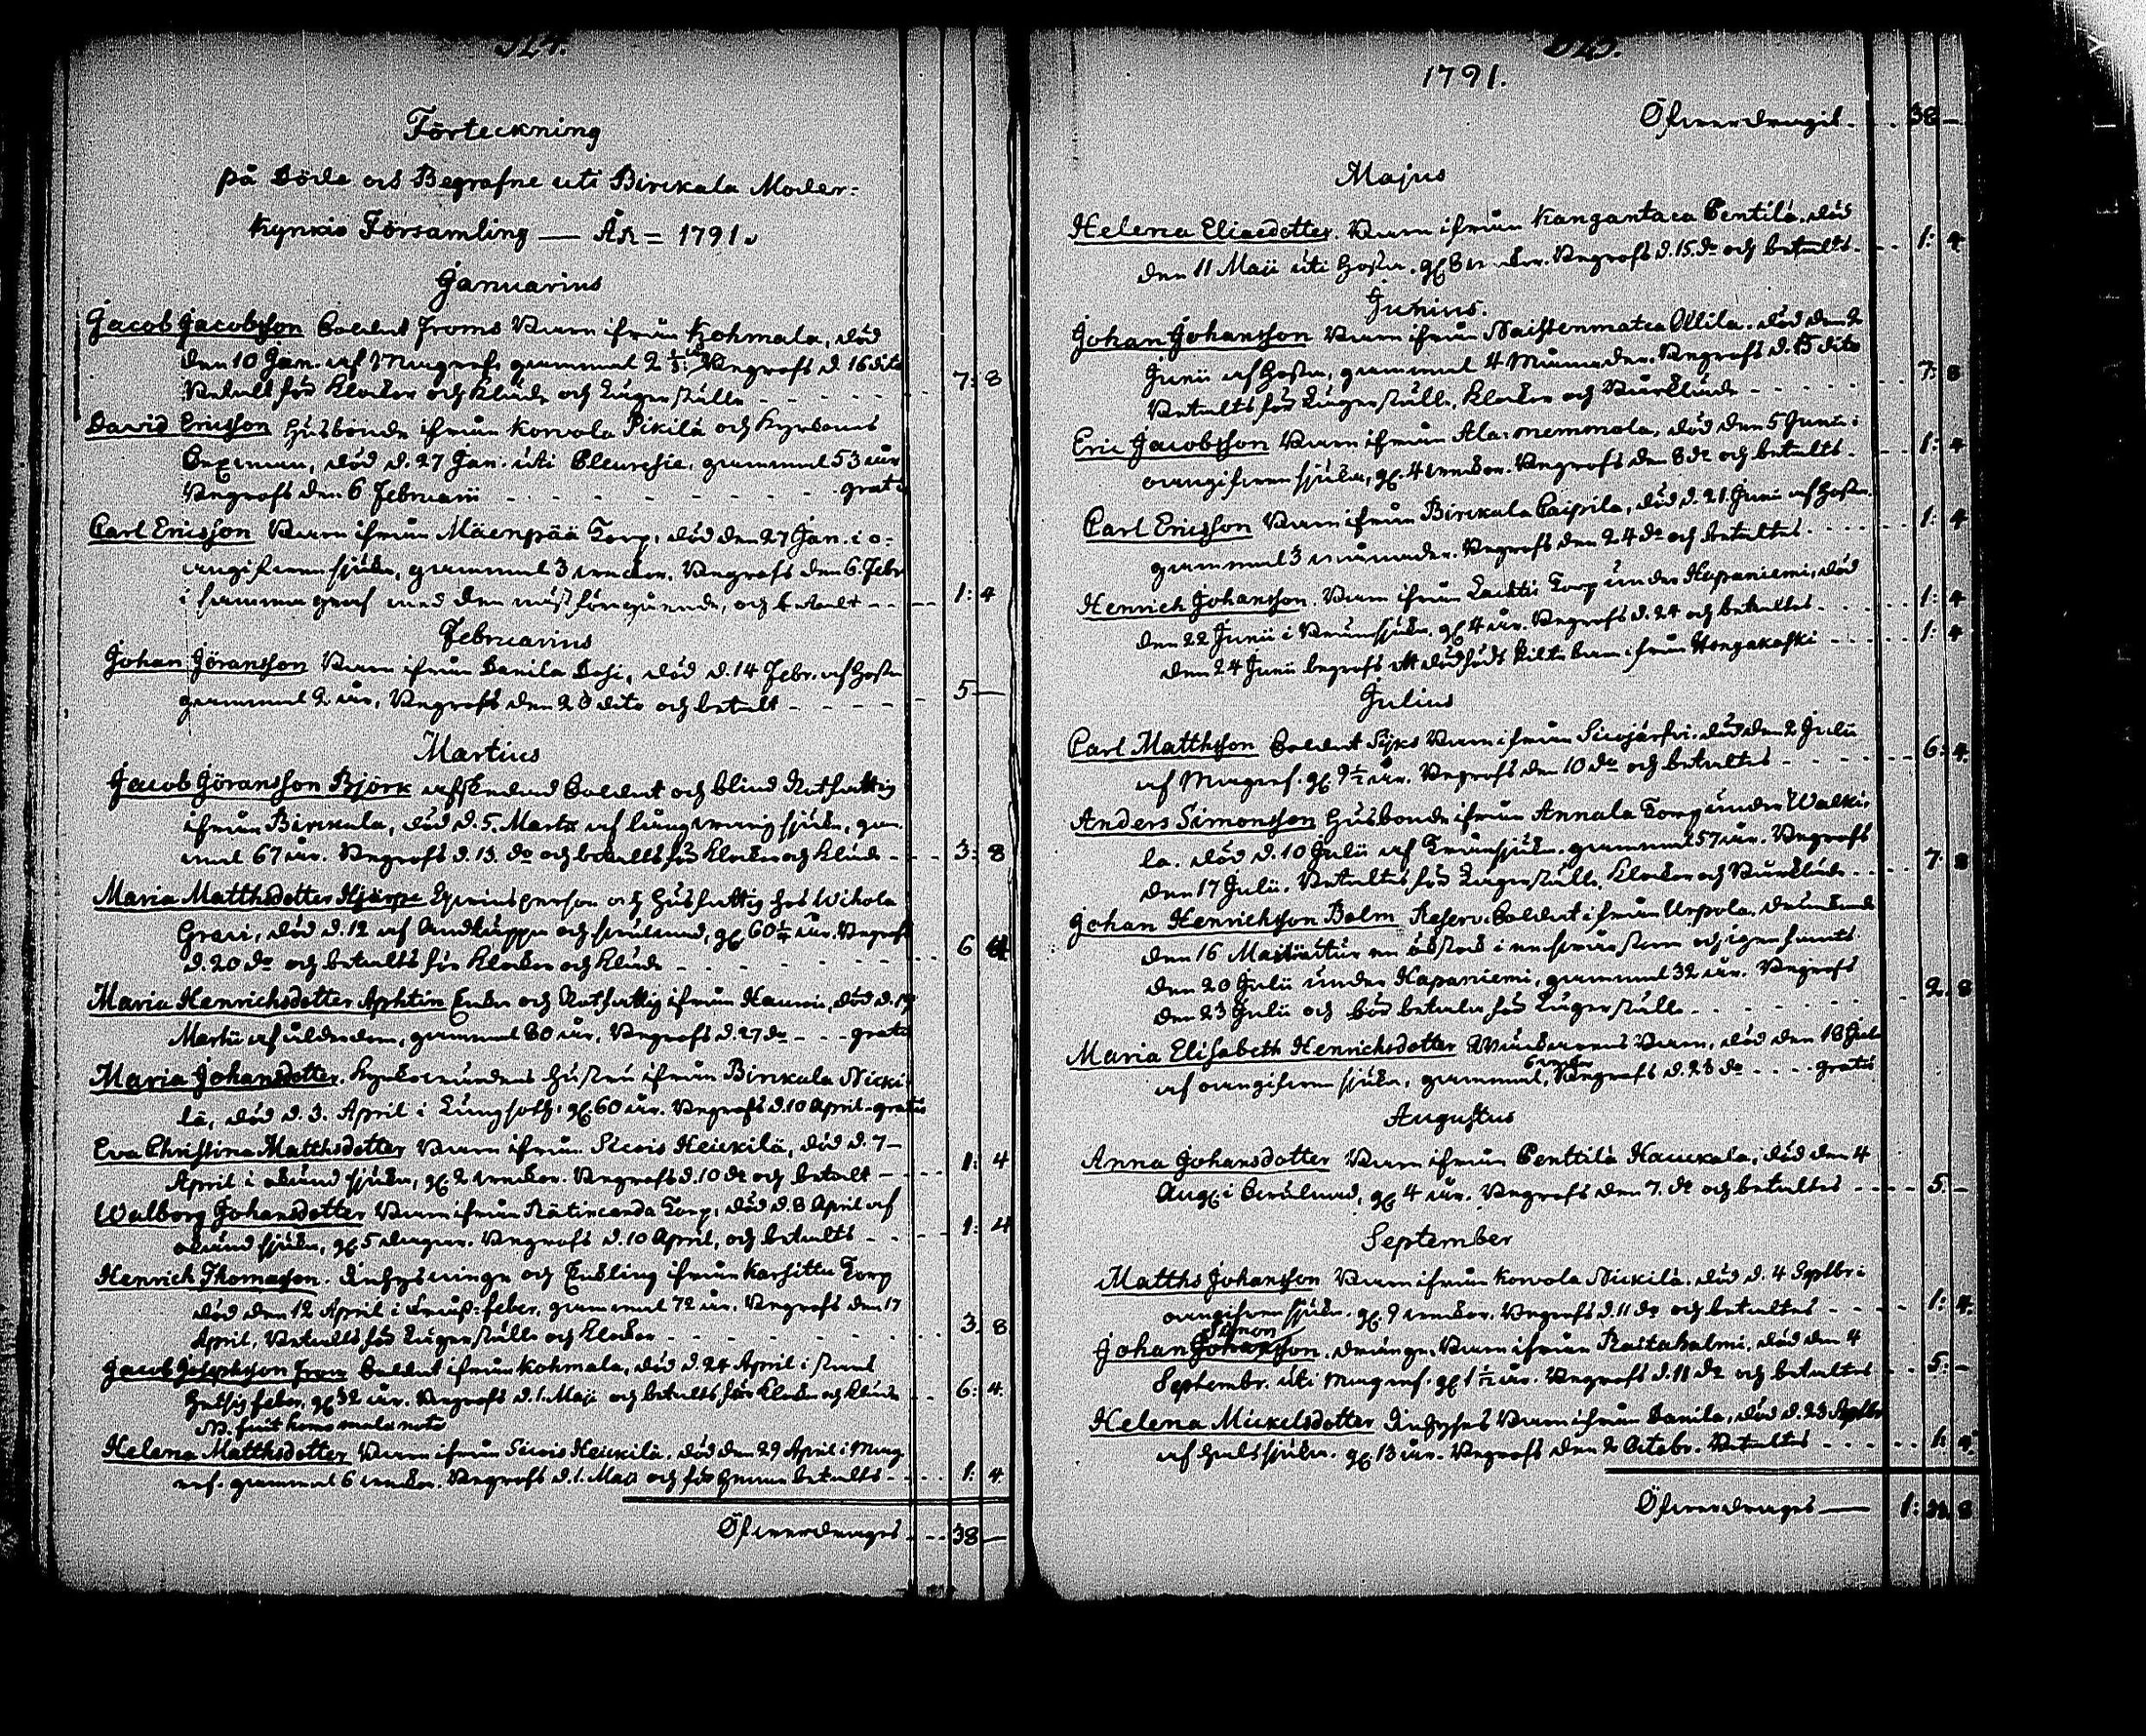 524.
Förteckning
på Döde och Begrafne uti Birckala Moder-
kyrkio Församling — År = 1791.
Januarius
Jacob Jacobsson Soldat Froms Barn ifrån Kohmala, död
den 10 Jan. af Magref, gammal 2 1/2 år Begrofs d. 16 dito
Betalt för Klockor och Kläde och Lägerställe - - - 7: 8
David Ericsson Husbonde ifrån Korvola Pikilä och Kyrkans
Sexman, död d. 27 Jan. uti Pleuresie, gammal 53 år
Begrofs den 6 Februarii - - - gratis
Carl Ericsson Barn ifrån Mäenpää Torp, död den 27 Jan. i o-
angifven sjukd., gammal 3 veckor. Begrofs den 6. Febr
i samma graf med den näst föregående, och betalt - - 1: 4
Februarius
Johan Jöransson Barn ifrån Danila Dahi, död d. 14 Febr. af Hosta
gammal 2 år, Begrofs den 20 dito och betalt - - - 5 —
Martius
Jacob Göransson Björk afskedad Soldat och blind Rotfattig
ifrån Birckala, död d. 5. Martii af långvarig sjukd., gam-
mal 67 år. Begrofs d. 13. do och betaltes för Klockor och Kläde - 3: 8
Maria Matthsdotter Hjärpe Gratiusperson och Husfattig hos Wihola
Grani, död d. 12 af Andtäppa och svulnad, gl. 60 1/4 år. Begrofs
d. 20 do och betaltes för Klockor och Kläde - - - 6 4
Maria Henrichsdotter Aphtin Enka och Rotfattig ifrån Haumia, död d. 19
Martii af ålderdom, gammal 80 år, Begrofs d. 27 do - - - gratis
Maria Johansdotter, Kyrkovärdens Hustru ifrån Birckala Nicki-
lä, död d. 3. April i Lungsoth, gl. 60 år. Begrofs d. 10 April - gratis
Eva Christina Matthsdotter Barn ifrån Siuois Heickilä, död d. 7 -
April i okänd sjukd., gl. 2 veckor. Begrofs d. 10 do och betalt - 1: 4
Walborg Johansdotter Barn ifrån Rätinranda Torp, död d. 8 April af
okänd sjukd., gl. 5 dagar. Begrofs d. 10 April, och betaltes - - 1: 4
Henrich Thomasson. Inhysninge och Enkling ifrån Karhittu Torp
död den 12 April i Frusß-feber, gammal 72 år. Begrofs den 17
April, Betaltes för Lägerställe och Klockor - - - 3 8
Jacob Josephsson From Soldat ifrån Kohmala, död d. 24 April i
hetsig feber, gl. 32 år. Begrofs d. 1. Maji och betaltes för Klockor och Kläde 6: 4.
NB. fuit homo malæ notæ
Helena Matthsdotter Barn ifrån Siuois Heickilä. död den 29 April i Mag
ref. gammal 6 veckor. Begrofs d. 1. Maii och för henne betaltes - 1: 4
Öfverdrages - - 38 —
525.
1791.
Öfverdragit - - 38 —
Majus
Helena Eliædotter. Barn ifrån Kangantaca Pentilä. död
den 11 Maii uti Hosta. gl. 8 veckor. Begrofs d. 15. do och betaltes - 1: 4
Junius.
Johan Johansson Barn ifrån Naistenmatca Ollila. död den 2
Junii af Hosta, gammal 4 Månader. Begrofs d. 13 dito
Betaltes för Lägerställe, Klockor och Bårkläde - - - 7: 8
Eric Jacobsson Barn ifrån Ala-memmola, död den 5 Junii i
oangifven sjukd., gl. 4 veckor. Begrofs den 8 do och betaltes. 1: 4
Carl Ericsson Barn ifrån Birckala Paipila, död d. 21 Junii af Hosta.
gammal 3 månader. Begrofs den 24 do och betaltes. - - 1: 4
Henrich Johansson. Barn ifrån Torp under Hapaniemi, död
den 22 Junii i Bränsjuka. gl. 4 år. Begrofs d. 24 och betaltes. 1: 4
Den 24 Junii begrofs ett dödfödt Piltebarn. från Hongakoski - - 1: 4
Julius
Carl Matthsson Soldat Syks Barn ifrån Siurjärfvi. död den 2 Julii
af Magref. gl. 9 1/2 år. Begrofs den 10 do och betaltes - - - 6: 4.
Anders Simonsson Husbonde ifrån Annala Torp under Walki-
la. död d. 10 Julii af Tränsjuka. gammal 57 år. Begrofs
den 17 Julii. Betaltes för Lägerställe, Klockor och Bårkläde - - 7: 8
Johan Henrichsson Balm Reserv-Soldat ifrån Urpola, drunknade
den 16 Maii utur en ökstock i och igenfants
den 20 Julii under Hapaniemi, gammal 32 år. Begrofs
den 23 Julii och bör betalas för Lägerställe - - - 2. 8
Maria Elisabeth Henrichsdotter Barn, död den 18 Jul
6 veckor
af oangifven sjukd., gammal, Begrofs d. 28 do - - - gratis
Augustus
Anna Johansdotter Barn ifrån Penttilä Hauckala, död den 4
Aug. i Svulnad, gl. 4 år. Begrofs den 7. do och betaltes - - - 5. -
September
Matths Johansson Barn ifrån Korvola Nickilä. död d. 4 Septbr i
oangifven sjukd. gl. 9 veckor. Begrofs d. 11 do och betaltes - - 1: 4.
Simon
Johan Johansson. drängs Barn ifrån Rastaholmi, död den 4
Septembr. uti Magref. gl. 1 1/2 år. Begrofs d. 11 do och betaltes - 5: -
Helena Mickelsdotter Inhyses Barn ifrån Danila, död d. 23 Septbr
af halssjuka. gl. 13 år. Begrofs den 2 Octobr. Betaltes - - - 1: 4
Öfverdrages — 1: 8